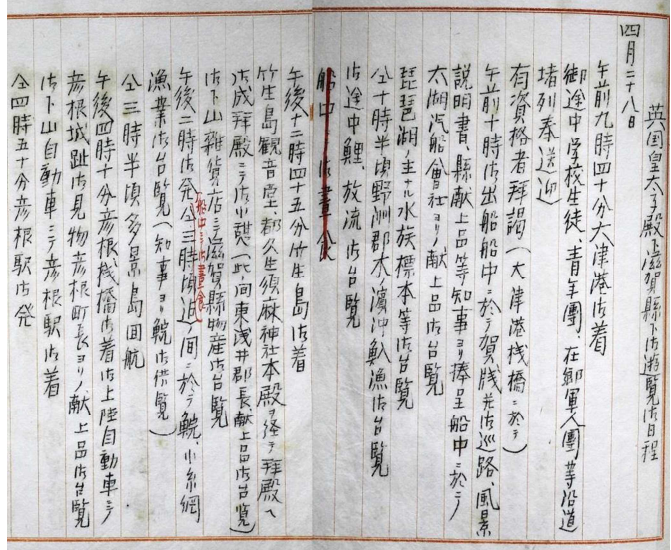 英国皇太子殿下滋賀縣下御遊覧御日程
四月二十八日
午前九時四十分大津港御着
御途中学校生徒、青年團、在郷軍人團等沿道
堵列奉送迎
有資格者拝謁(大津港桟橋ニ於テ)
午前十時御出船船中ニ於テ賀牋並御巡路、風景
説明書、縣献上品等知事ヨリ捧呈船中ニ於テ
太湖汽船會社ヨリノ献上品御台覧
琵琶湖ノ主ナル水族標本等御台覧
仝十時半頃野洲郡木濱沖魞漁御台覧
御途中鯉ノ放流御台覧
船中ニテ御晝食
午後十二時四十五分竹生島御着
竹生島観音堂、都久生須麻神社本殿ヲ経テ拝殿ヘ
御成拝殿ニテ御小憩(此間東浅井郡長、献上品御台覧)
御下山雑貨店ニテ滋賀縣物産御台覧
午後二時御発仝三時頃迄ノ間ニ於テ鯇、小糸網
(船中ニテ御晝食)
漁業御台覧(知事ヨリ鯇御供覧)
仝三時半頃多景島回航
午後四時十分彦根桟橋御着御上陸自動車ニテ
彦根城趾御見物彦根町長ヨリノ献上品御台覧
御下山自動車ニテ彦根駅御着
仝四時五十分彦根駅御発